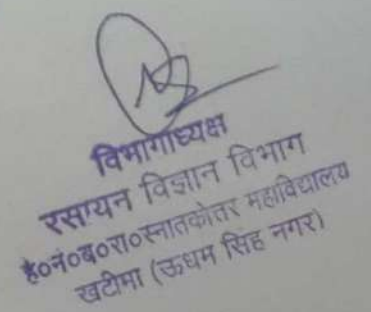 विभागाध्यक्ष
रसायन विज्ञान विभाग
हे०नं०ब०रा०स्नातकोतर महाविद्यालय
खटीमा (ऊधम सिंह नगर)